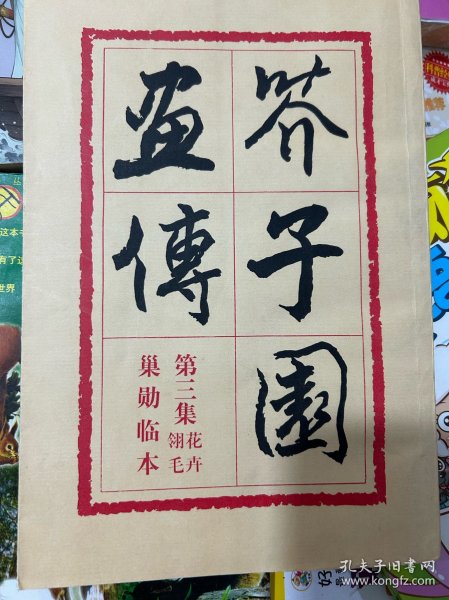 芥子園
畫傳
第三集 花卉
翎毛
巢勋临本
这本书
世界
孔夫子旧书网
www.kongfz.com